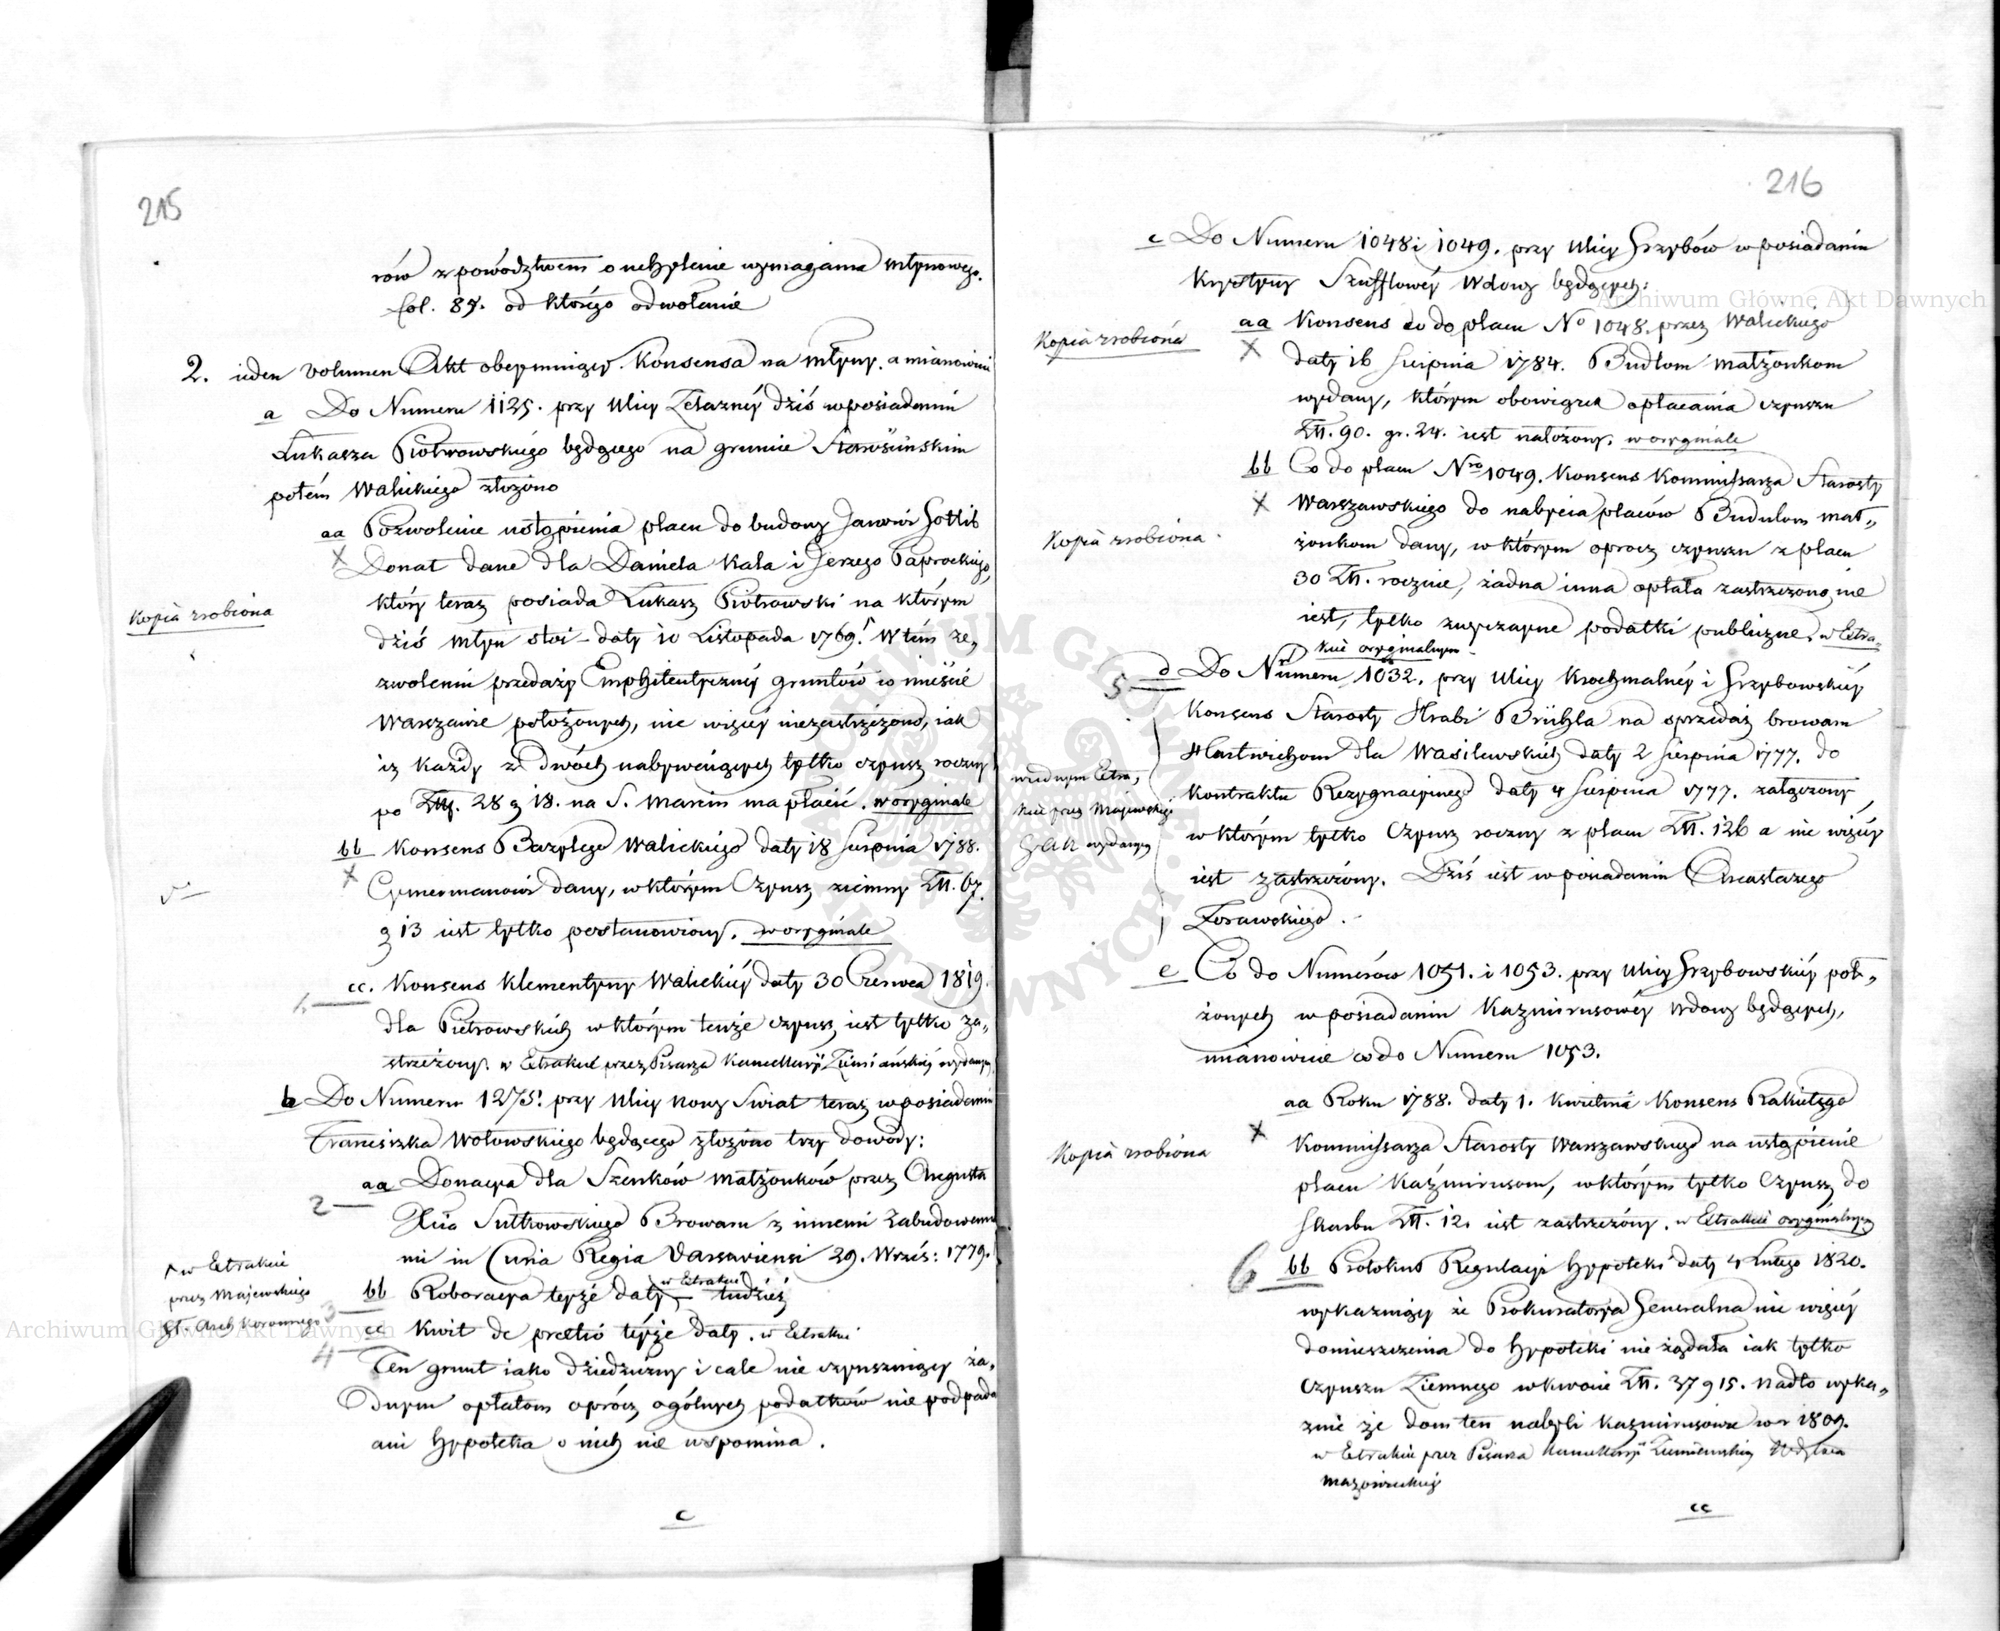 215
rów z powództwem o uchylenie wymagania młynowego.
fol. 87. od którego odwołanie
2. ieden Volumen Akt obeymuiący Konsensa na młyny, a mianowicie
a Do Numeru 1125. przy Ulicy Żelazney dziś w posiadaniu
Łukasza Piotrowskiego będącego na gruncie Starościńskim
potém Walickiego złożono
aa Pozwolenie ustąpienia placu do budowy Janowi Gotlib
Donat dane dla Daniela Kala i Jerzego Paprockiego,
który teraz posiada Łukasz Piotrowski na którym
Kopia zrobiona
dziś młyn stoi - daty 10 Listopada 1769. W tém ze„
zwoleniu przedaży Emphiteutyczney gruntów w mieście
Warszawie położonych, nic więcey niezastrzeżono, iak
iż każdy z dwóch nabywaiących tylko czynsz roczny
po Złł. 28 g 18. na S. Marcin ma płacić. w oryginale
bb Konsens Bazylego Walickiego daty 18 Sierpnia 1788.
Cymermanowi dany, w którym Czynsz ziemny Złł. 67.
g 13 iest tylko postanowiony. w oryginale
cc. Konsens Klementyny Walickiéy daty 30 Czerwca 1819.
dla Piotrowskich w którym tenże czynsz iest tylko za„
strzeżony. w Extrakcie przez Pisarza Kancellaryi Ziemiańskiéy wydanym
b Do Numeru 1275. przy Ulicy nowy Świat teraz w posiadaniu
Franciszka Wołowskiego będącego złożono trzy dowody:
aa Donacya dla Szenków małżonków przez Augusta
2
Xcia Sułkowskiego Browaru z innemi Zabudowania
mi in Curia Regia Varsaviensi 29. Wrześ: 1779.
w Extrakcie
przez Majewskiego
Gł. Arch Koronnego
bb Roboracya teyże daty w Extrakcie tudzież
3
cc Kwit de precio téyże daty. w Extrakcie
4
Ten grunt iako dziedziczny i cale nie czynszuiący ża„
dnym opłatom oprócz ogólnych podatków nie podpada
ani hypoteka o nich nie wspomina.
c
216
c Do Numeru 1048 i 1049. przy Ulicy Grzybów w posiadaniu
Krystyny Szufflowéy Wdowy będących:
aa Konsens co do placu No 1048. przez Walickiego
Kopia zrobiona
daty 16 Sierpnia 1784. Budlom małżonkom
wydany, którym obowiązek opłacania czynszu
Złł. 90. gr. 24. iest nałożony. w oryginale
bb Co do placu Nro 1049. Konsens Kommissarza Starosty
Warszawskiego do nabycia placów Budulom mał„
Kopia zrobiona
żonkom dany, w którym oprocz czynszu z placu
30 Złł. rocznie, żadna inna opłata zastrzeżoną nie
iest, tylko zwyczayne podatki publiczne. w Extra„
kcie oryginalnym
5 d Do Numeru 1032. przy Ulicy Krochmalnéy i Grzybowskiéy
Konsens Starosty Hrabi Brühla na sprzedaż browaru
Hartwichom dla Wasilewskich daty 2 Sierpnia 1777. do
Kontraktu Rezygnacyinego daty 4 Sierpnia 1777. załączony,
przez Majewskiego
w którym tylko Czynsz roczny z placu Złł. 126 a nic więcéy
wydanym
iest zastrzeżony. Dziś iest w posiadaniu Anastazego
Żorawskiego.
e Co do Numerów 1051. i 1053. przy Ulicy Grzybowskiéy poło„
żonych w posiadaniu Kazmirusowéy wdowy będących,
mianowicie co do Numeru 1053.
aa Roku 1788. daty 1. Kwietnia Konsens Rakietego
Kommissarza Starosty Warszawskiego na ustąpienie
Kopia zrobiona
placu Kaźmirusom, w którym tylko Czynsz do
Skarbu Złł. 12. iest zastrzeżony. w Extrakcie oryginalnym
6 bb Protokuł Regulacyi hypoteki daty 4 Lutego 1820.
wykazuiący że Prokuratorya Generalna nic więcéy
domieszczenia do hypoteki nie żądała iak tylko
Czynszu Ziemnego w kwocie Złł. 37 g 15. nadto wyka„
zuie że dom ten nabyli Kazmirusowie w r 1809.
w Extrakcie przez Pisarza Kancellaryi Ziemiańskiey Wdztwa
Mazowieckiéy
cc
Archiwum Główne Akt Dawnych
Archiwum Główne Akt Dawnych
ARCHIWUM GŁÓWNE AKT DAWNYCH